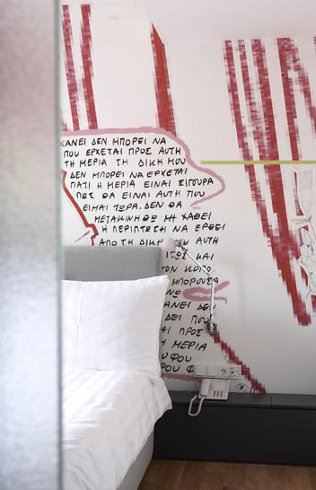 ΚΑΝΕΙ ΔΕΝ ΜΠΟΡΕΙ ΝΑ
ΠΟΥ ΕΡΧΕΤΑΙ ΠΡΟΣ ΑΥΤΗ
ΤΗ ΜΕΡΙΑ ΤΗ ΔΙΚΗ ΜΟΥ
ΔΕΝ ΜΠΟΡΕΙ ΝΑ ΕΡΧΕΤΑΙ
ΓΙΑΤΙ Η ΜΕΡΙΑ ΕΙΝΑΙ ΣΙΓΟΥΡΑ
ΠΩΣ ΘΑ ΕΙΝΑΙ ΑΥΤΗ ΠΟΥ
ΕΙΜΑΙ ΤΩΡΑ. ΔΕΝ ΘΑ
ΜΕΤΑΚΙΝΗΘΩ ΜΗ ΧΑΘΕΙ
Η ΠΕΡΙΠΤΩΣΗ ΝΑ ΕΡΘΕΙ
ΑΠΟ ΤΗ ΔΙΚΗ ΑΥΤΗ
ΙΣΩΣ ΚΑΙ
ΜΠΟΡΟΥΣΑ
ΚΑΝΕΙ ΔΕΝ
ΔΕΙ ΠΟΥ
ΑΙ ΠΡΟΣ
Η ΜΕΡΙΑ